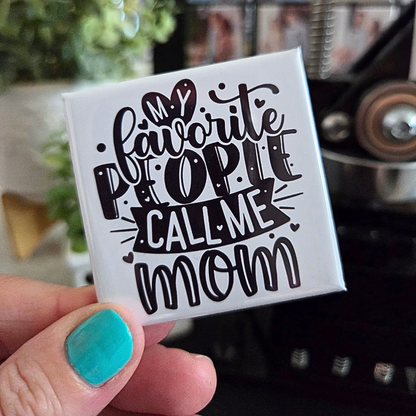 MY
favorite
PEOPLE
CALL ME
mom